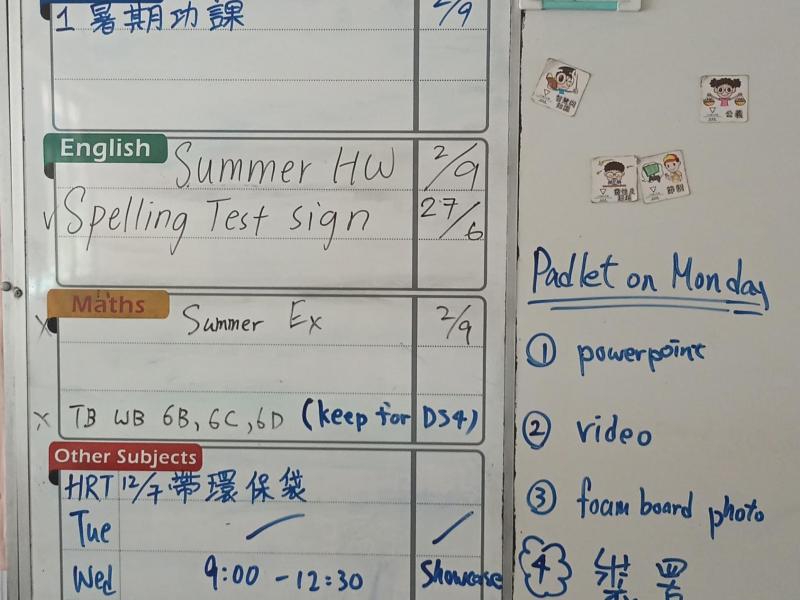 1 暑期功課 2/9
English
Summer HW 2/9
Spelling Test sign 27/6
Maths
Summer Ex 2/9
TB WB 6B, 6C, 6D (keep for DS4)
Other Subjects
HRT 12/7 帶環保袋
Tue
Wed 9:00 - 12:30 Showcase
公義
節制
Padlet on Monday
① powerpoint
② video
③ foam board photo
④